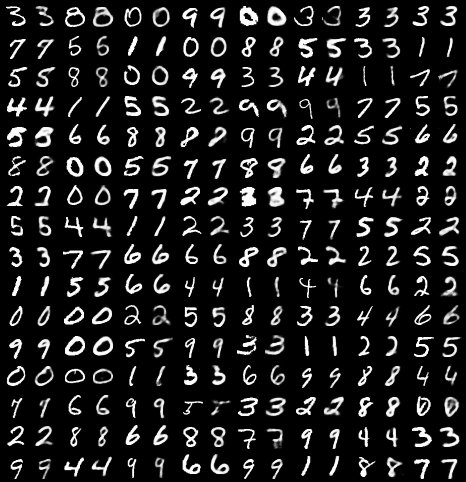 3 3 8 8 0 0 9 9 0 0 3 3 3 3 3 3
7 7 5 5 1 1 0 0 8 8 5 5 3 3 1 1
5 5 8 8 0 0 9 9 3 3 4 4 1 1 7 7
4 4 1 1 5 5 2 2 9 9 9 9 7 7 5 5
5 5 6 6 8 8 8 8 9 9 2 2 5 5 6 6
8 8 0 0 5 5 7 7 8 8 6 6 3 3 2 2
2 2 0 0 7 7 2 2 3 3 7 7 4 4 2 2
5 5 4 4 1 1 2 2 3 3 7 7 5 5 2 2
3 3 7 7 6 6 6 6 8 8 2 2 2 2 5 5
1 1 5 5 6 6 4 4 1 1 4 4 6 6 2 2
0 0 0 0 2 2 5 5 8 8 3 3 4 4 6 6
9 9 0 0 5 5 9 9 3 3 1 1 2 2 5 5
0 0 0 0 1 1 3 3 6 6 9 9 8 8 4 4
7 7 6 6 9 9 5 5 3 3 2 2 8 8 0 0
2 2 8 8 6 6 8 8 7 7 9 9 4 4 3 3
9 9 4 4 9 9 6 6 9 9 1 1 8 8 7 7